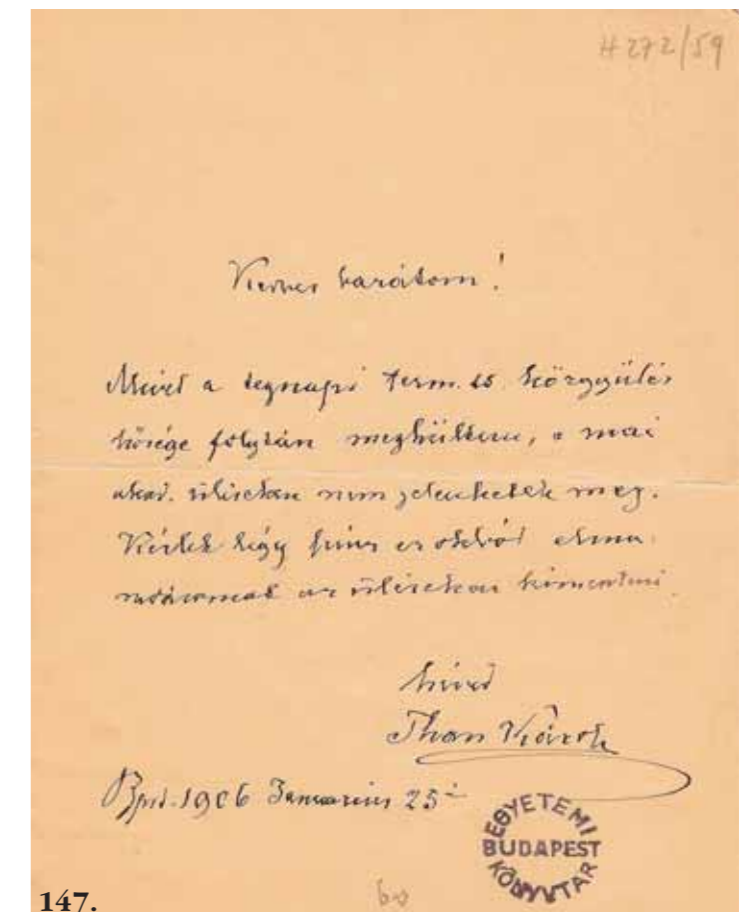 H 272/59
Kedves barátom!
Mivel a tegnapi term. ts. közgyülés
hősége folytán meghültem, a mai
akad. üléseken nem jelenhetek meg.
Kérlek légy szives ez okból elma-
radásomat az üléseken kimenteni.
hived
Than Károly
Bpest. 1906 Januárius 25
EGYETEMI
BUDAPEST
KÖNYVTÁR
147.